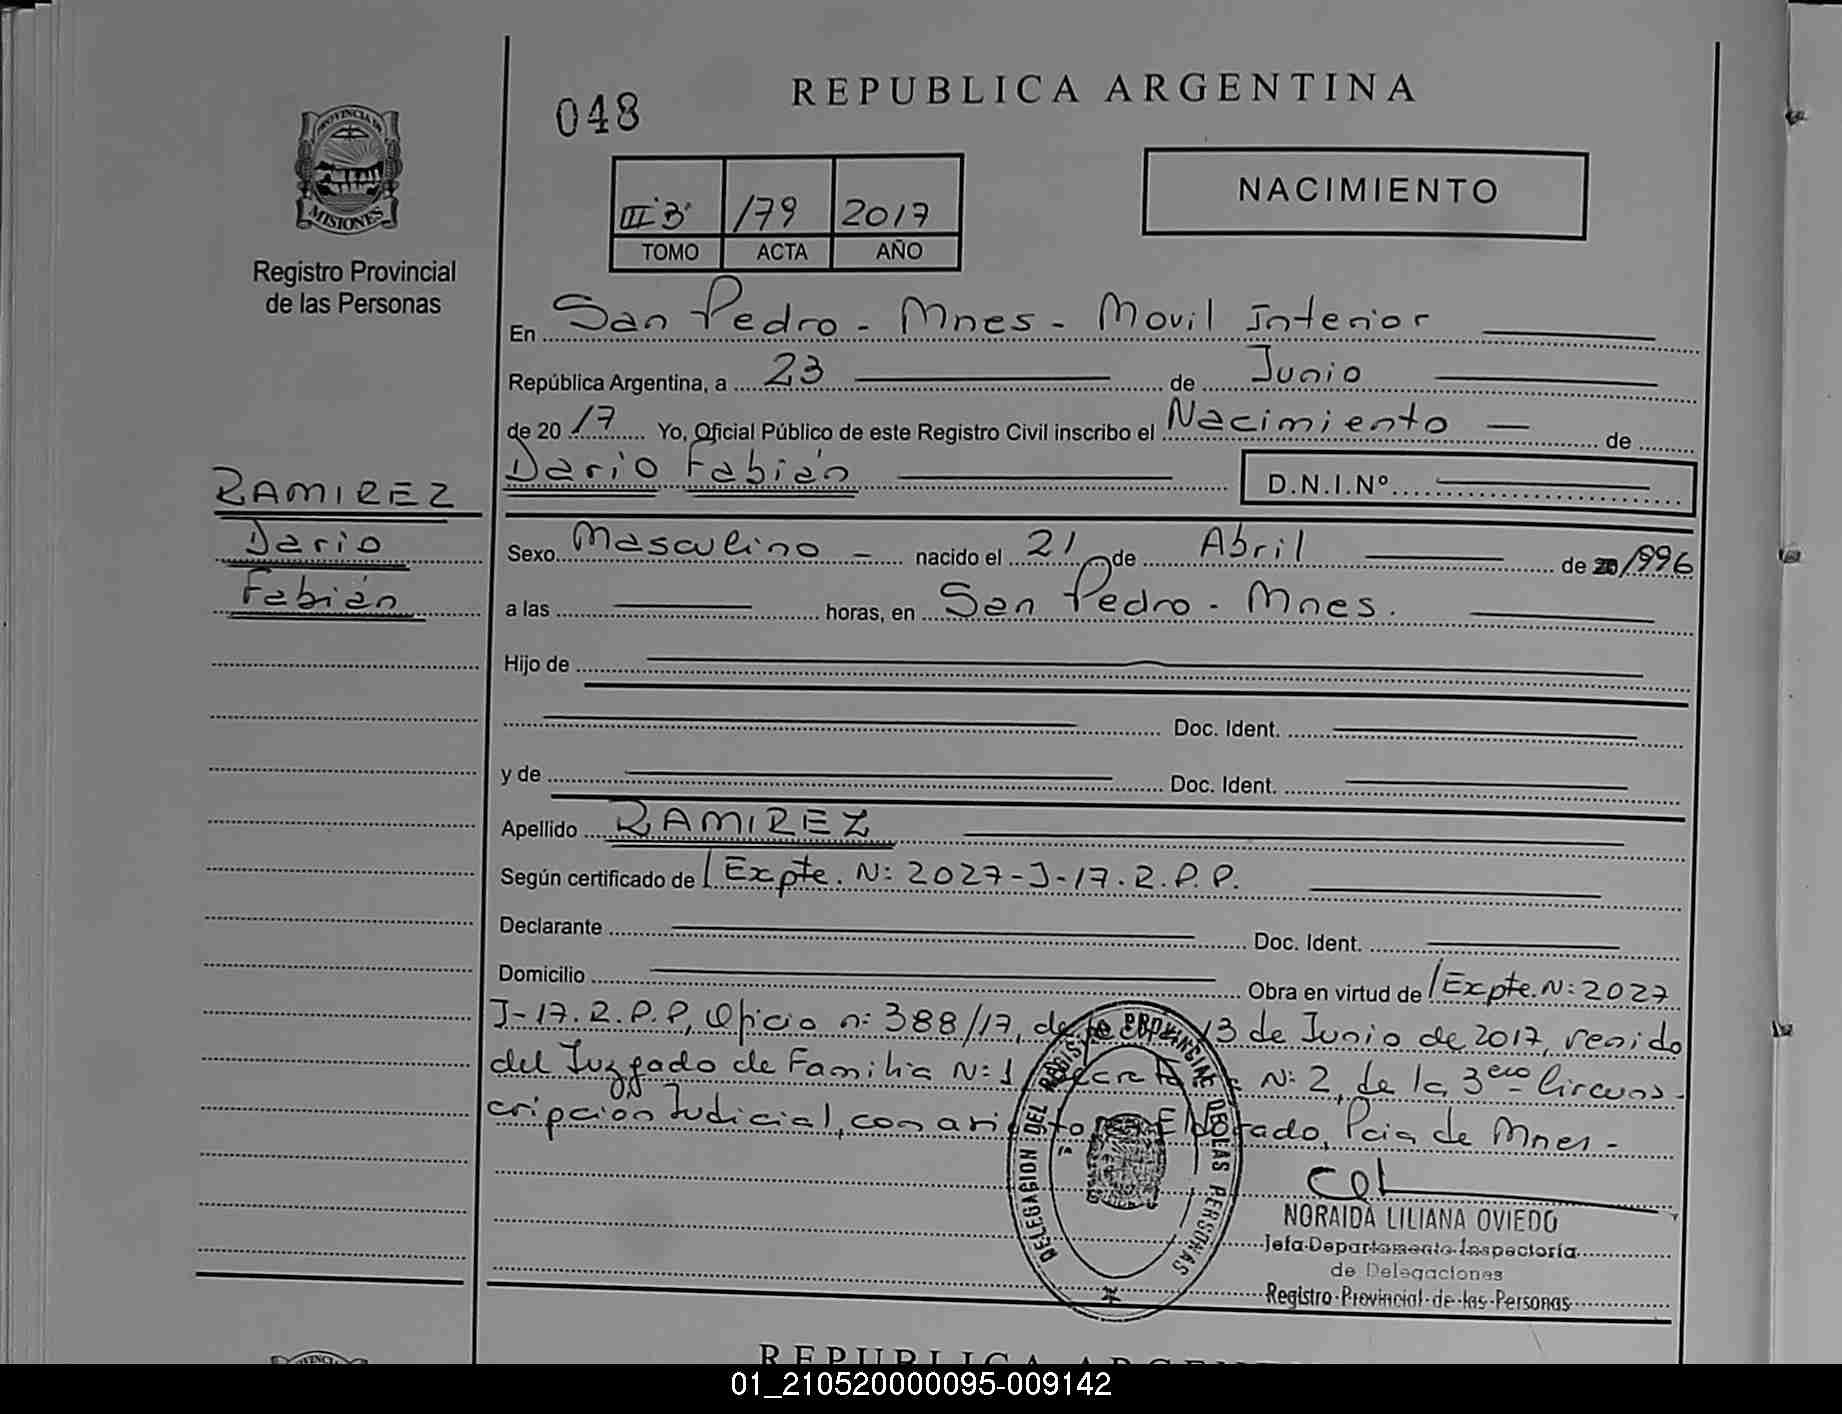 048
REPUBLICA ARGENTINA
PROVINCIA DE MISIONES
Registro Provincial
de las Personas
III "B" 179 2017
TOMO ACTA AÑO
NACIMIENTO
En San Pedro - Mnes - Movil Interior
República Argentina, a 23 de Junio
de 2017 Yo, Oficial Público de este Registro Civil inscribo el Nacimiento - de
Dario Fabián D.N.I.Nº
RAMIREZ
Dario
Fabián
Sexo Masculino - nacido el 21 de Abril de 1996
a las horas, en San Pedro - Mnes.
Hijo de
Doc. Ident.
y de Doc. Ident.
Apellido RAMIREZ
Según certificado de Expte. N: 2027-J-17.R.P.P.
Declarante Doc. Ident.
Domicilio Obra en virtud de Expte. N: 2027
J-17.R.P.P, Oficio n: 388/17, de 13 de Junio de 2017, venido
del Juzgado de Familia N: 1 N: 2, de la 3era Circuns-
cripción Judicial, con asiento en Eldorado, Pcia de Mnes -
DELEGACION DEL REGISTRO PROVINCIAL DE LAS PERSONAS
NORAIDA LILIANA OVIEDO
Jefa Departamento Inspectoría
de Delegaciones
Registro Provincial de las Personas
REPUBLICA ARGENTINA
01_210520000095-009142